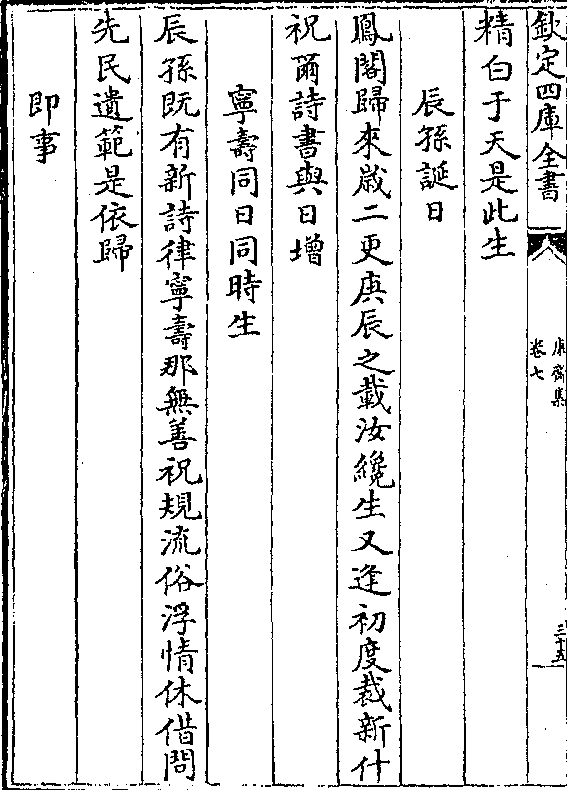 欽定四庫全書
康齋集
卷七
三十五
精白于天是此生
辰孫誕日
鳳閣歸來嵗二更庚辰之載汝纔生又逢初度裁新什
祝爾詩書與日增
寧壽同日同時生
辰孫既有新詩律寧壽那無善祝規流俗浮情休借問
先民遺範是依歸
即事